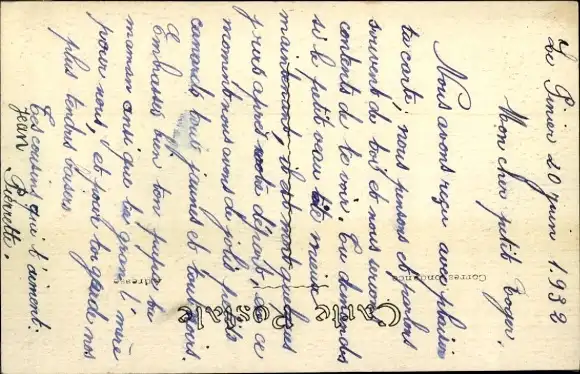 Le Pinier 20 juin 1.932
Mon cher petit Roger.
Nous avons reçu avec plaisir
ta carte, nous pensons et parlons
souvent de toi et nous serions
contents de te voir. Tu demandes
si le petit veau tète mieux
maintenant, il est mort quelques
jours après votre départ, en ce
moment nous avons de jolis petits
canards tout jaunes et tout gris.
Embrasse bien ton papa ta
maman ainsi que ta grand'mère
pour nous, et pour toi garde nos
plus tendres baisers.
Tes cousins qui t'aiment.
Jean Pierrette.
Carte Postale
Correspondance
Adresse